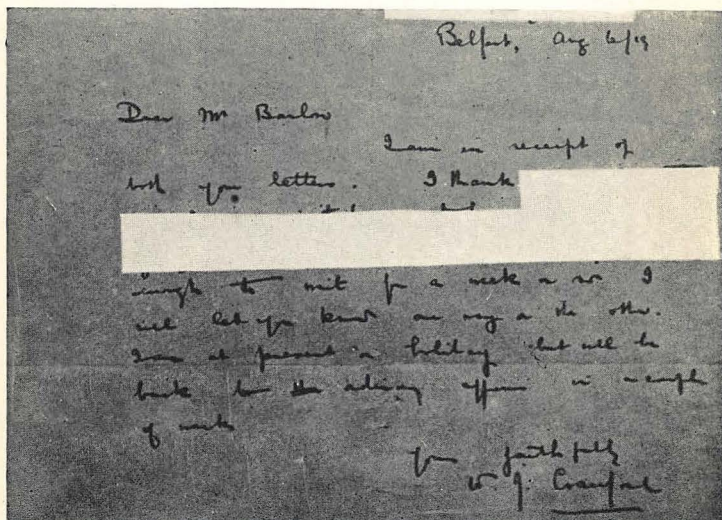 Belfast, Aug 6/19
Dear Mr Barlow
I am in receipt of
both your letters. I thank
enough to wait for a week or so I
will let you know one way or the other.
I am at present on holiday but will be
back to the in a couple
of weeks
yours faithfully
W. J. Crawford